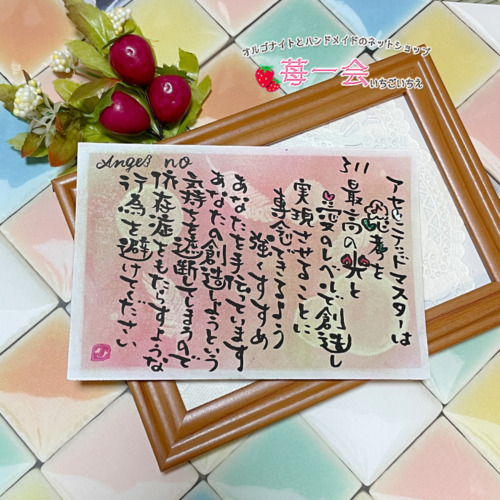 オルゴナイトとハンドメイドのネットショップ
苺一会いちごいちえ
Angel no
311
アセンテッドマスターは
思考を
最高の火と
愛のレベルで創造し
実現させることに
専念できてるよう
強くすすめ
あなたを手伝っています
あなたの創造しようという
気持ちを遮断してしまうので
依存症をもたらすような
行為を避けてください